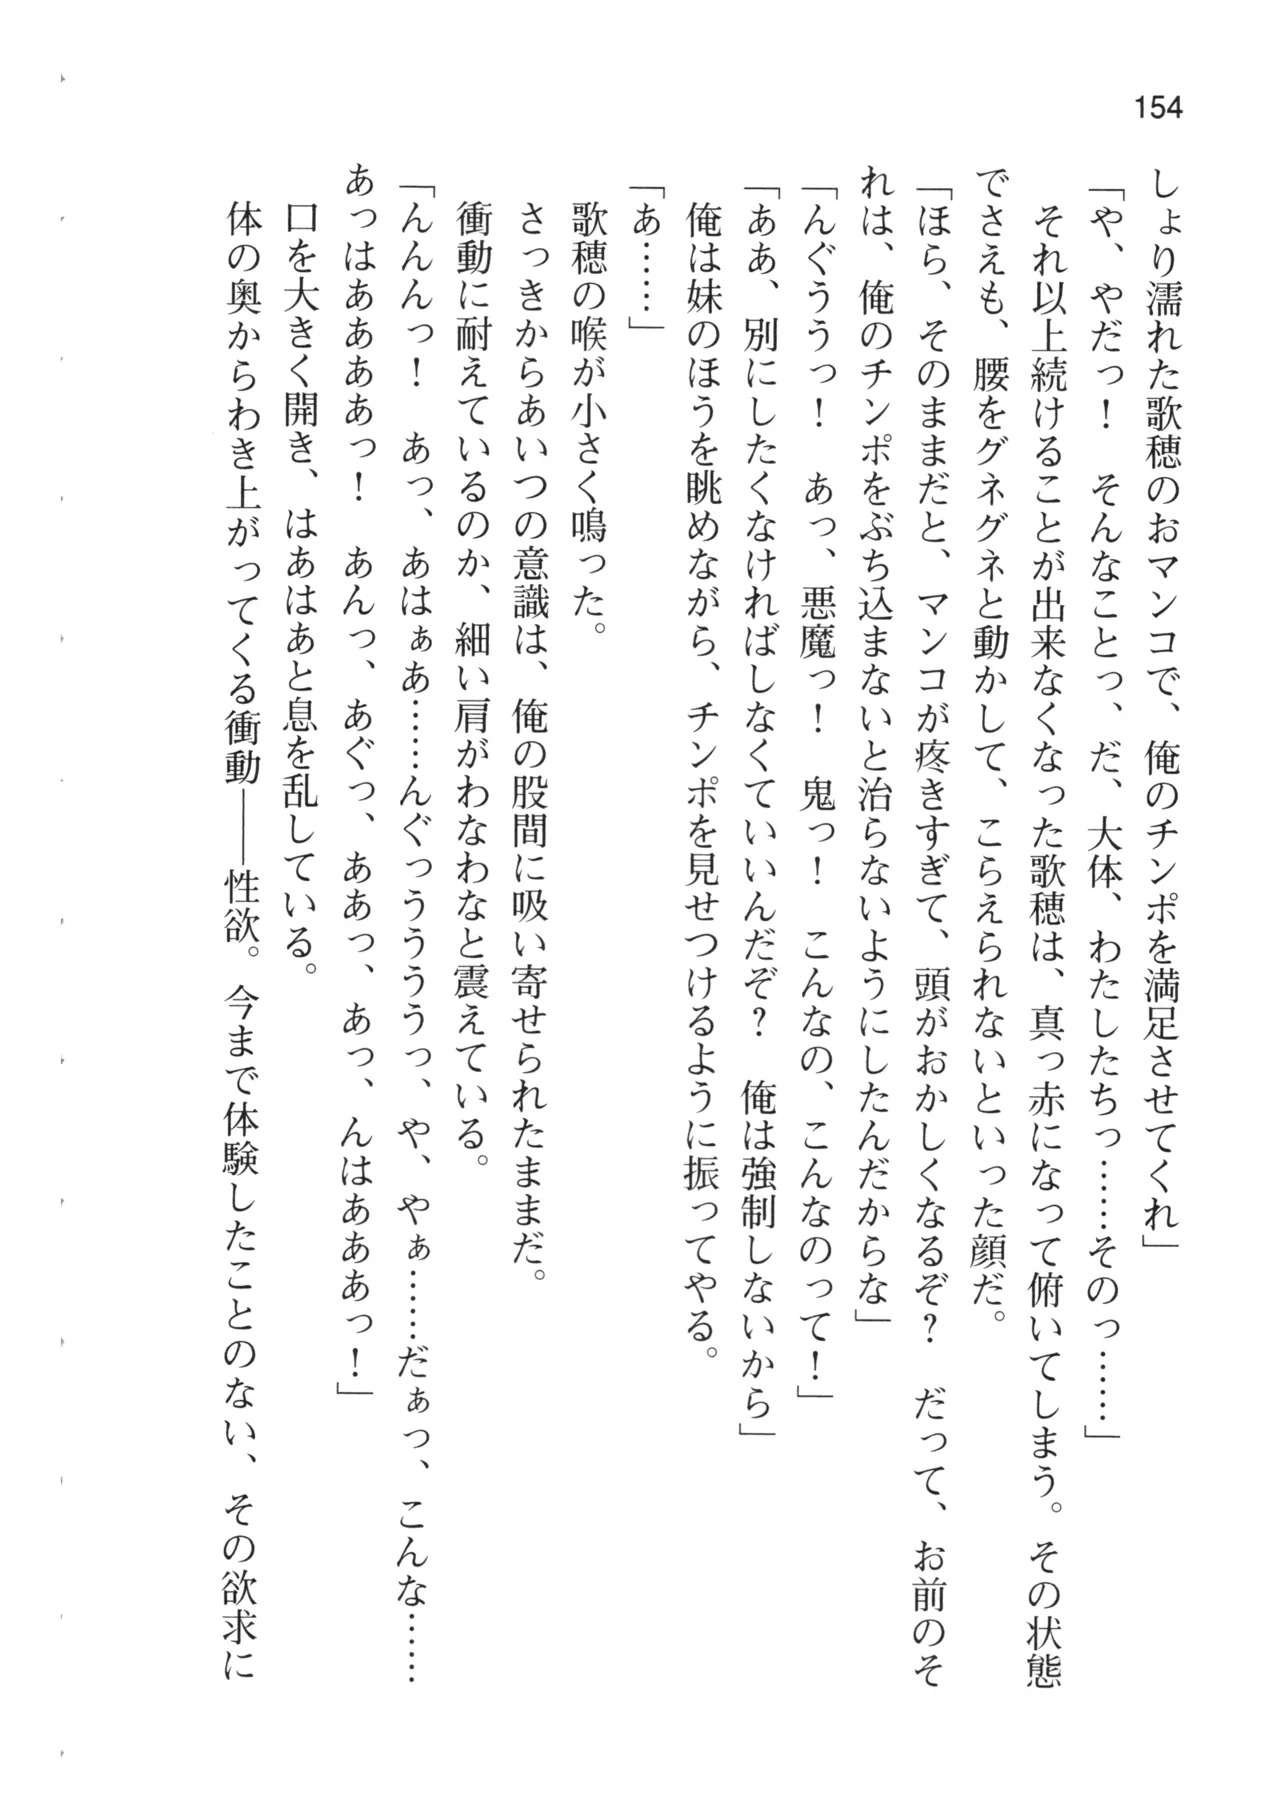 154
しょり濡れた歌穂のおマンコで、俺のチンポを満足させてくれ」
「や、やだっ！　そんなことっ、だ、大体、わたしたちっ……そのっ……」
　それ以上続けることが出来なくなった歌穂は、真っ赤になって俯いてしまう。その状態
でさえも、腰をグネグネと動かして、こらえられないといった顔だ。
「ほら、そのままだと、マンコが疼きすぎて、頭がおかしくなるぞ？　だって、お前のそ
れは、俺のチンポをぶち込まないと治らないようにしたんだからな」
「んぐううっ！　あっ、悪魔っ！　鬼っ！　こんなの、こんなのって！」
「ああ、別にしたくなければしなくていいんだぞ？　俺は強制しないから」
　俺は妹のほうを眺めながら、チンポを見せつけるように振ってやる。
「あ……」
　歌穂の喉が小さく鳴った。
　さっきからあいつの意識は、俺の股間に吸い寄せられたままだ。
　衝動に耐えているのか、細い肩がわなわなと震えている。
「んんんっ！　あっ、あはぁあ……んぐっうううっ、や、やぁ……だぁっ、こんな……
あっはああああっ！　あんっ、あぐっ、ああっ、あっ、んはあああっ！」
　口を大きく開き、はあはあと息を乱している。
　体の奥からわき上がってくる衝動――性欲。今まで体験したことのない、その欲求に